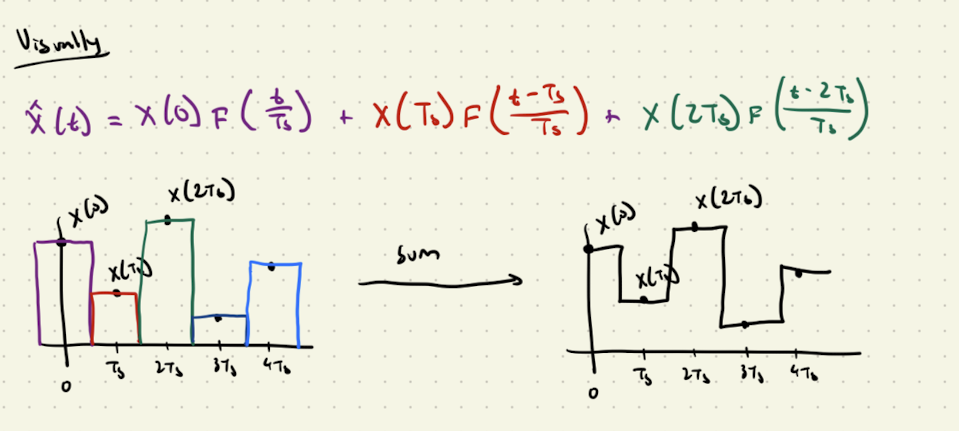 Visually
x̂(t) = x(0) F(t/Ts) + x(Ts) F((t-Ts)/Ts) + x(2Ts) F((t-2Ts)/Ts)
x(0) x(Ts) x(2Ts)
0 Ts 2Ts 3Ts 4Ts
sum
x(0) x(Ts) x(2Ts)
0 Ts 2Ts 3Ts 4Ts